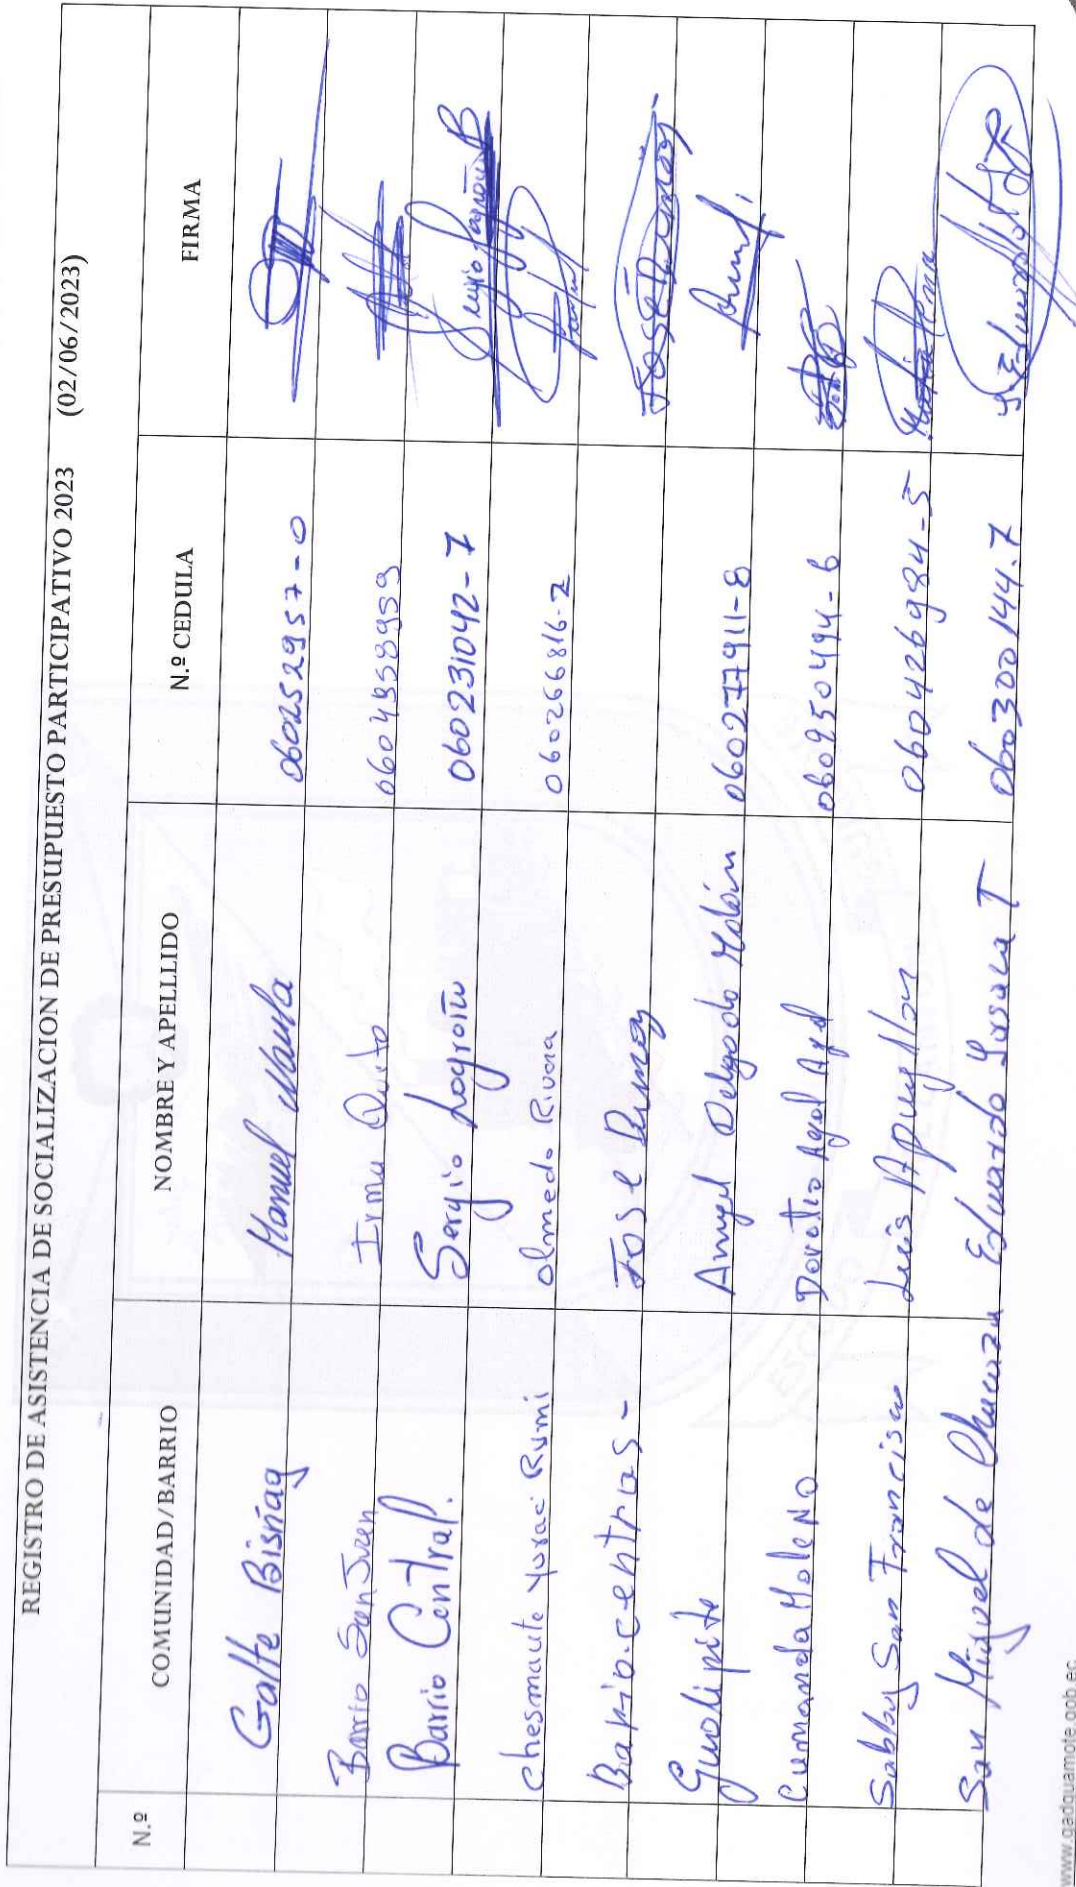 REGISTRO DE ASISTENCIA DE SOCIALIZACION DE PRESUPUESTO PARTICIPATIVO 2023 (02/06/2023)
N.º COMUNIDAD/BARRIO NOMBRE Y APELLLIDO N.º CEDULA FIRMA
Galte Bisñag Manuel Naula 060252957-0
Barrio San Juan Irma Quito
Barrio Central. Sergio Logroño 060231042-7 Sergio Logroño B
Chesmaute Yurac Rumi Olmedo Rivera 060266816-2
Barrio.centrus- José 
Guolipite Angel Delgado Malán 060277911-8
Cumanda Moleno Agual 060250494-6
Sablog San Francisco Luis 060426984-5
San Miguel de Chacaza Eduardo T 060300144.7
www.gadguamote.gob.ec